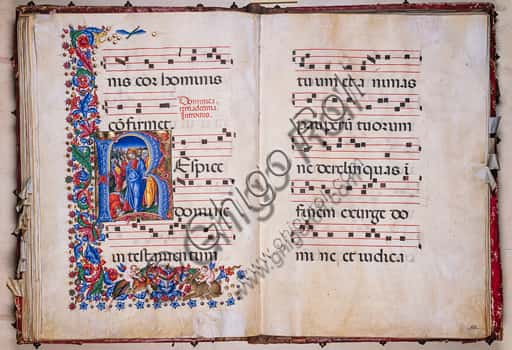 nis cor hominis
Dominica
Introitus
cōfirmet.
Respice
domine
in testamentum
tuum et a nimas
pauperū tuorum
ne derelinquas i
finem exurge do
mi ne et iudica
Ghigo Roli
www.ghigoroli.com